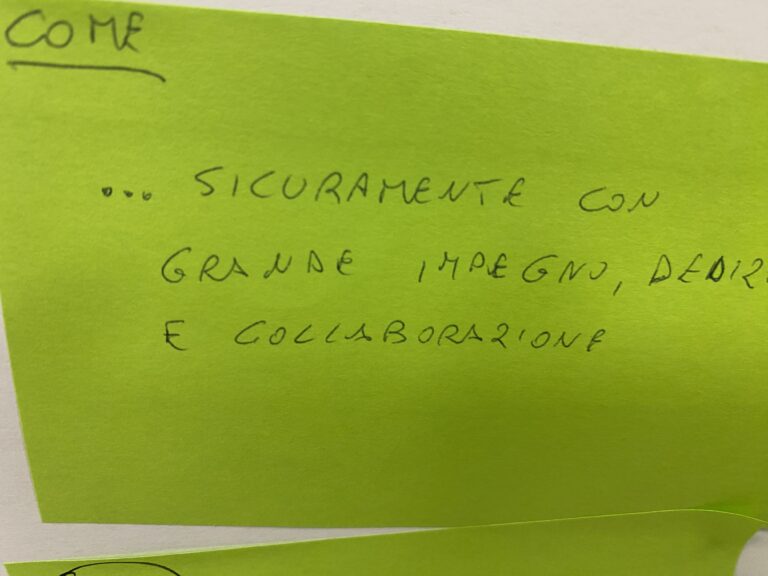 COME
... SICURAMENTE CON
GRANDE IMPEGNO,
E COLLABORAZIONE